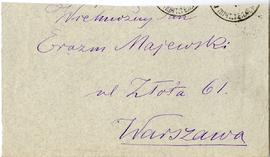 Wielmożny Pan
Erazm Majewski
ul Złota 61.
Warszawa